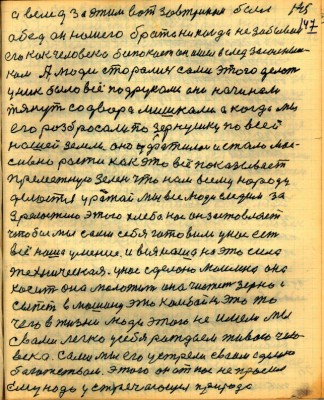 а вслед за этим вот завтрошна был 145
обед он нашего братка никогда не забывал 147
его как человека
кам А люди старались сами этого делать
у них было всё под руками они начинали
тянут со двора мешками а когда мы
его розбросали по зернушку по всей
нашей земли оно и стало мас-
сивно рости как это всё показывает
прелестную зелен что нам всему народу
делается урожай мы все люди следим за
зрелостию этого хлеба нас он заставляет
чтобы мы сами себя готовили у нас ест
всё наше умение и вся наша на это сила
техническая. у нас сделано машина она
косит она молотит она чистет зерно и
сыпет в машину это комбайн это то
чего в жизни люди этого не имели мы
сваими легко у себя рождаем живого чело-
века. Сами мы его устрели сваим сделано
багатством. этого он от нас не просил
ему надо устречающея природа